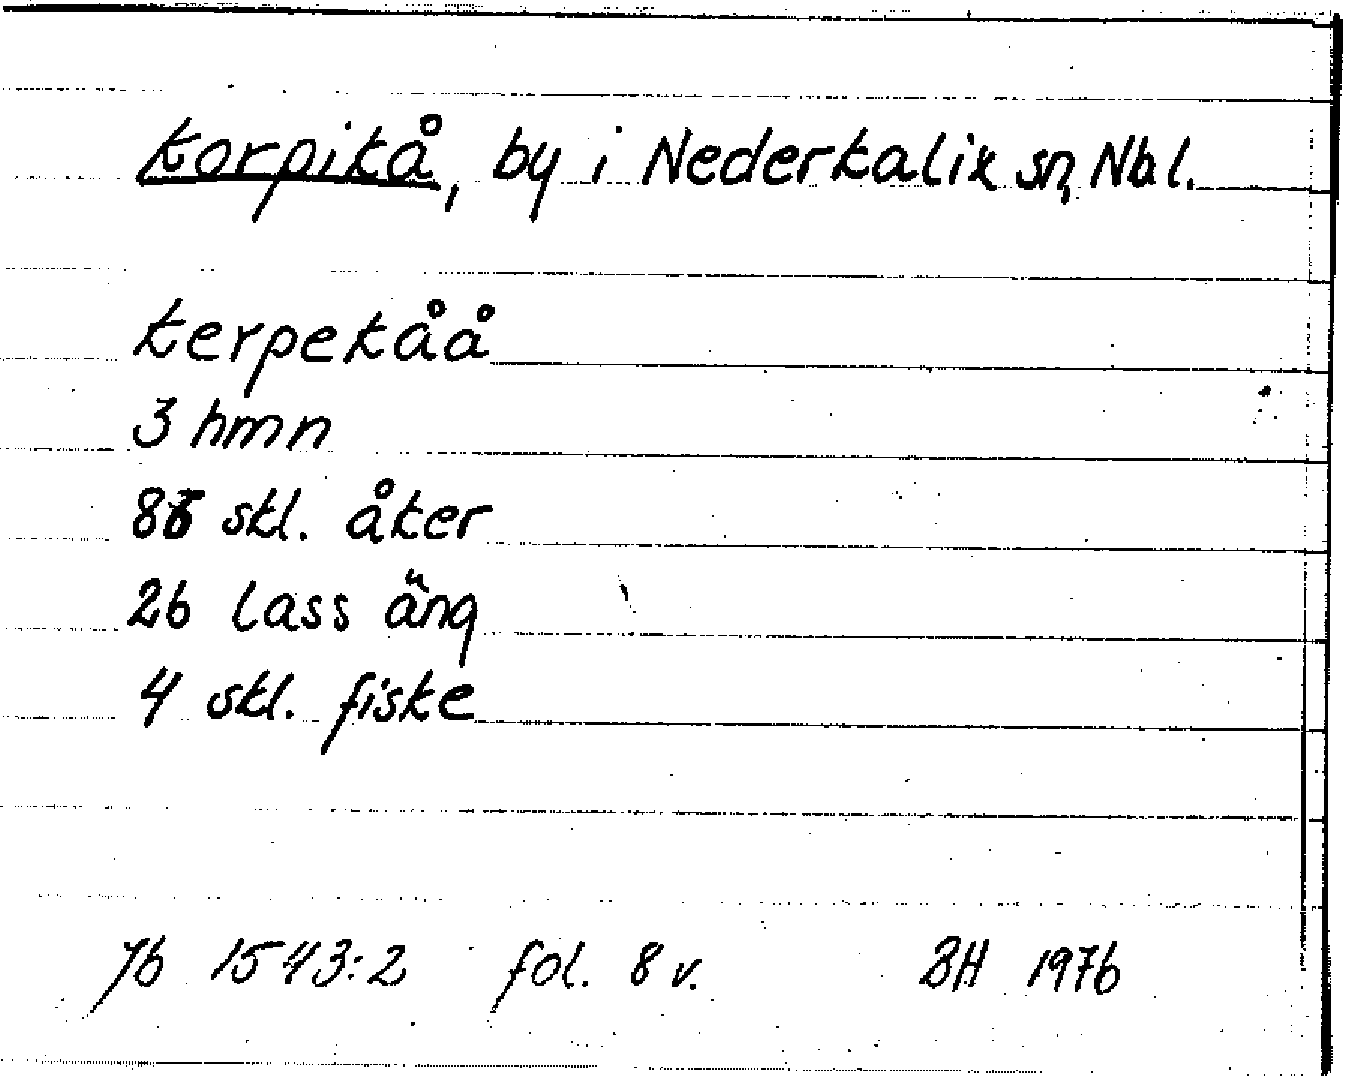 Korpikå, by i Nederkalix sn, Nbl.
Kerpekåå
3 hmn
skl. åker
26 lass äng
4 skl. fiske
Jb 1543:2 fol. 8 v. BH 1976